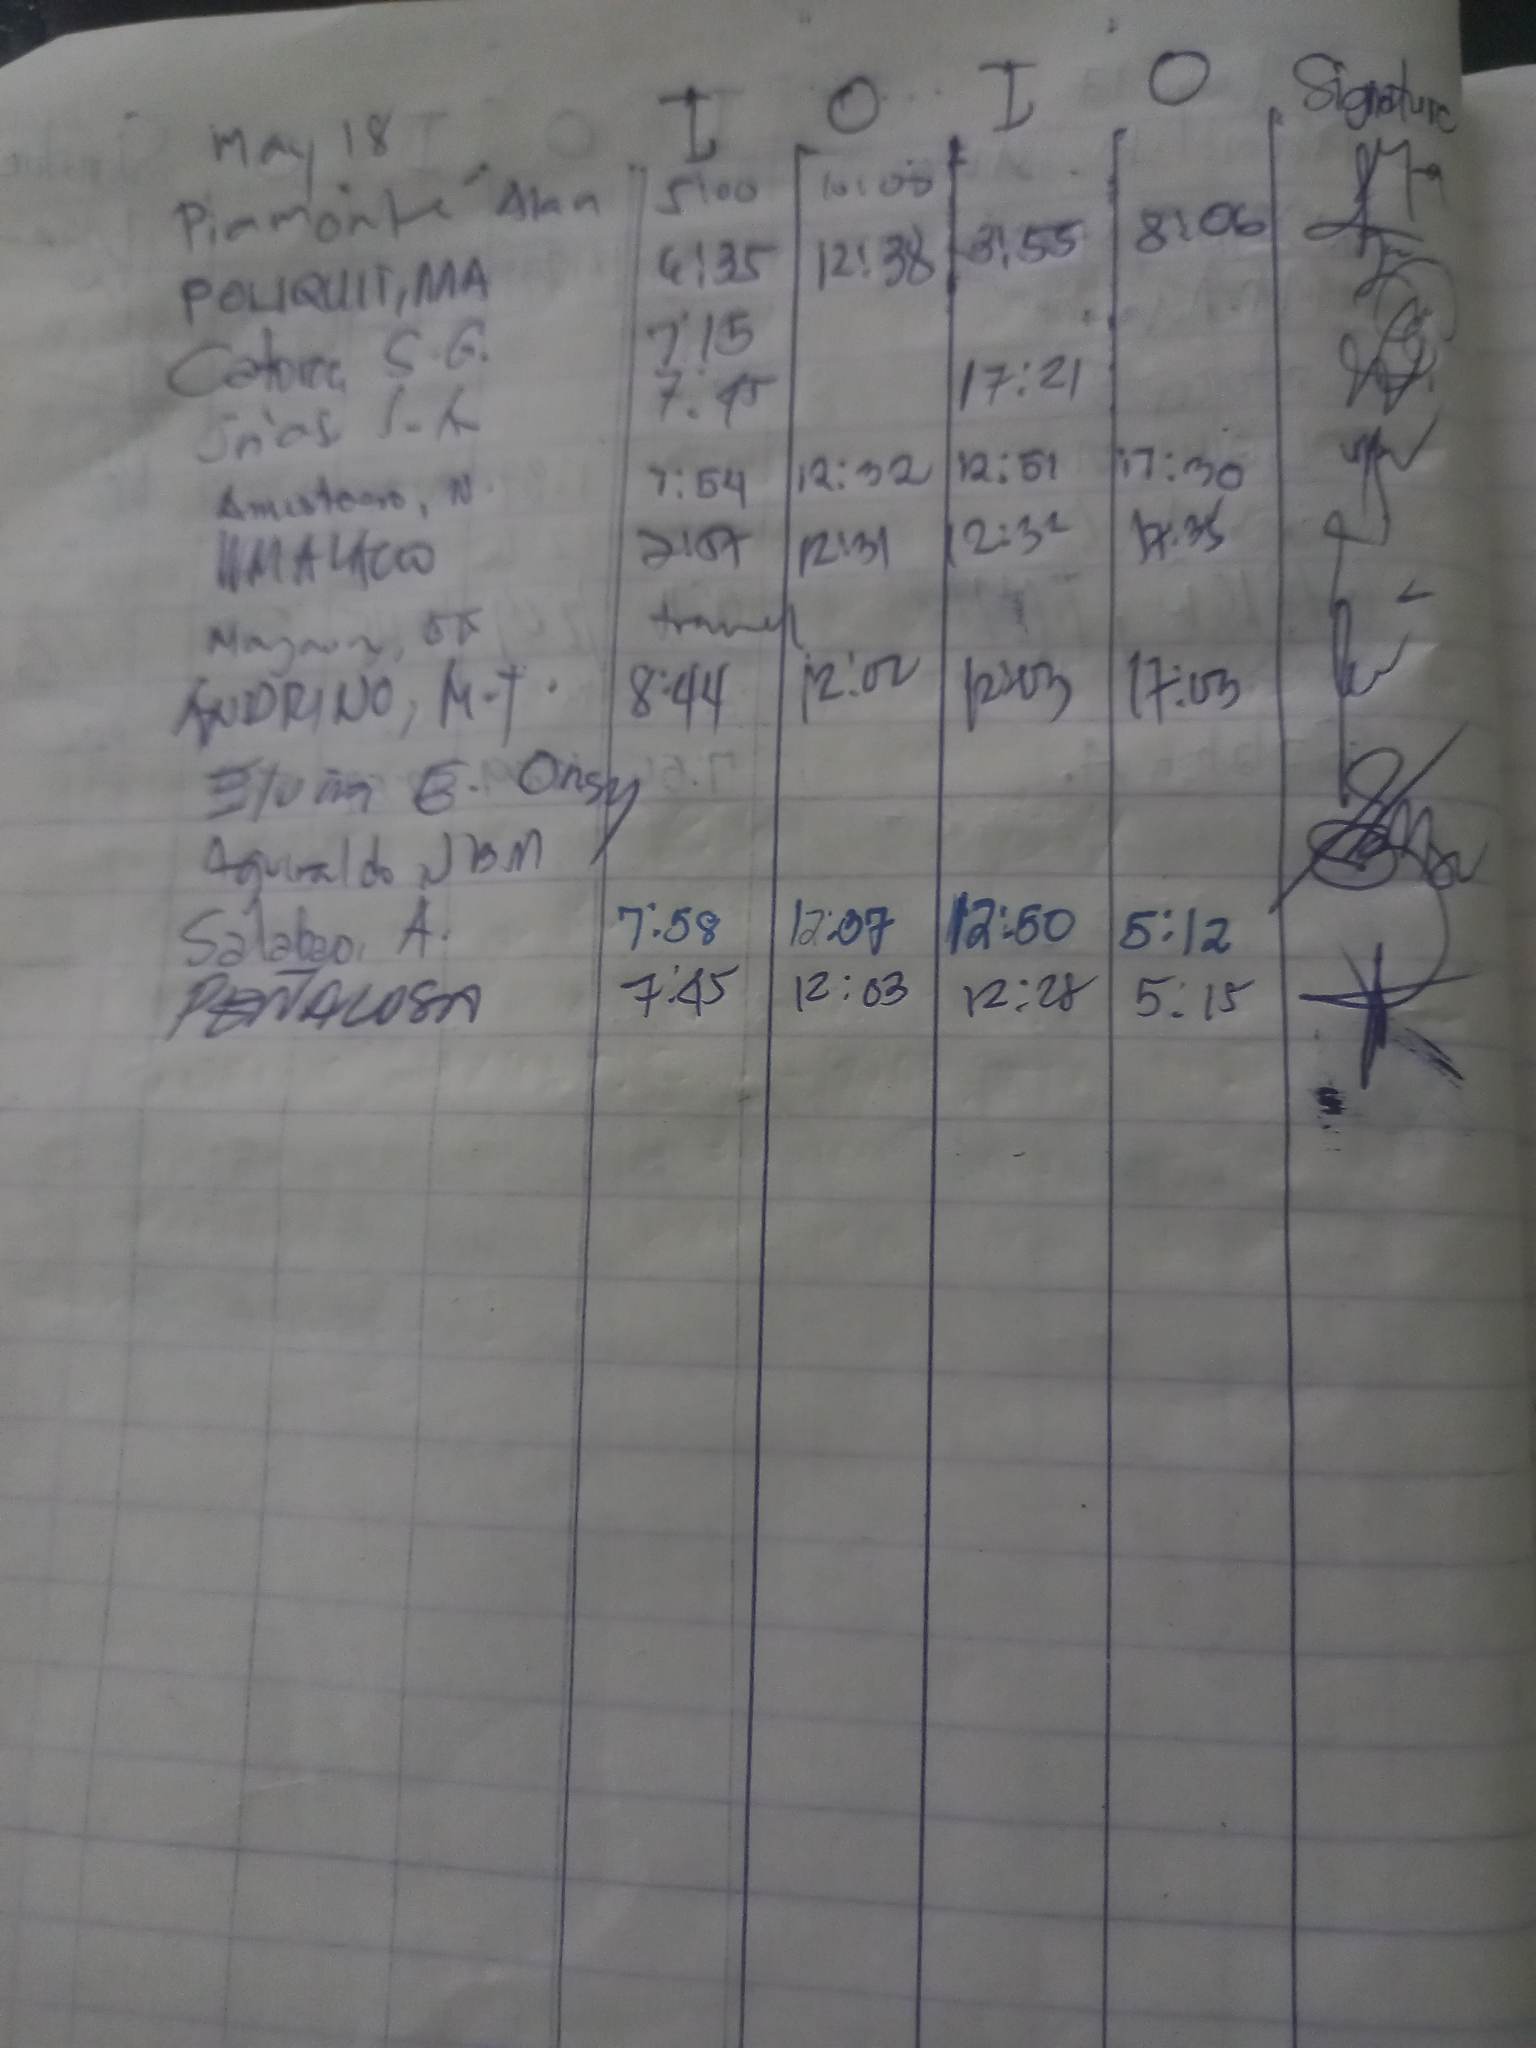 May 18 I O I O Signature
Piamonte Alan 5:00 10:00
POLIQUIT, MA 6:35 12:38 3:55 8:06
S.G. 7:15
7:45 17:21
N. 7:54 12:32 12:51 17:30
12:31 12:32 17:35
travel
ANDRINO, M.T. 8:44 12:02 12:03 17:03
E. Onsy
Aguinaldo NBM
Salabao, A. 7:58 12:07 12:50 5:12
PEÑALOSA 7:45 12:03 12:28 5:15